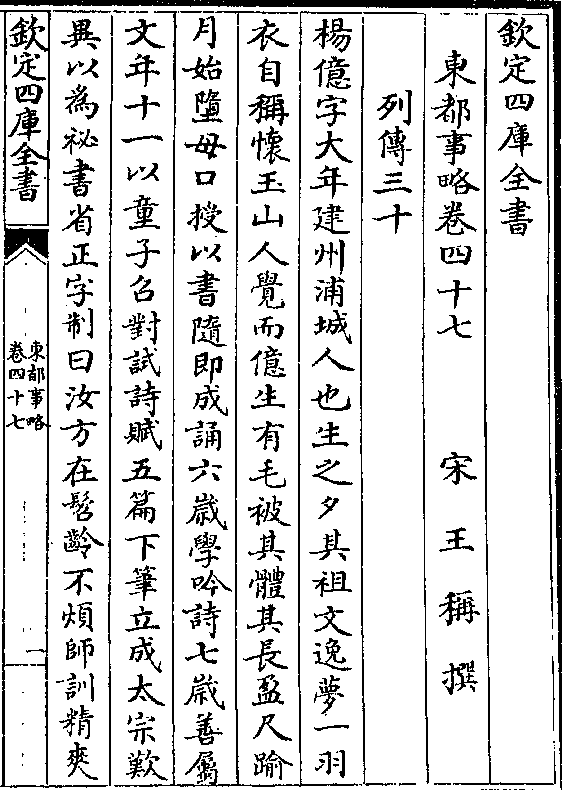 欽定四庫全書
東都事略卷四十七
宋 王 稱 撰
列傳三十
楊億字大年建州浦城人也生之夕其祖文逸夢一羽
衣自稱懷玉山人覺而億生有毛被其體其長盈尺踰
月始墮母口授以書隨即成誦六歲學吟詩七歲善屬
文年十一以童子召對試詩賦五篇下筆立成太宗歎
異以為祕書省正字制曰汝方在髫齡不煩師訓精爽
欽定四庫全書
東都事略
卷四十七
一